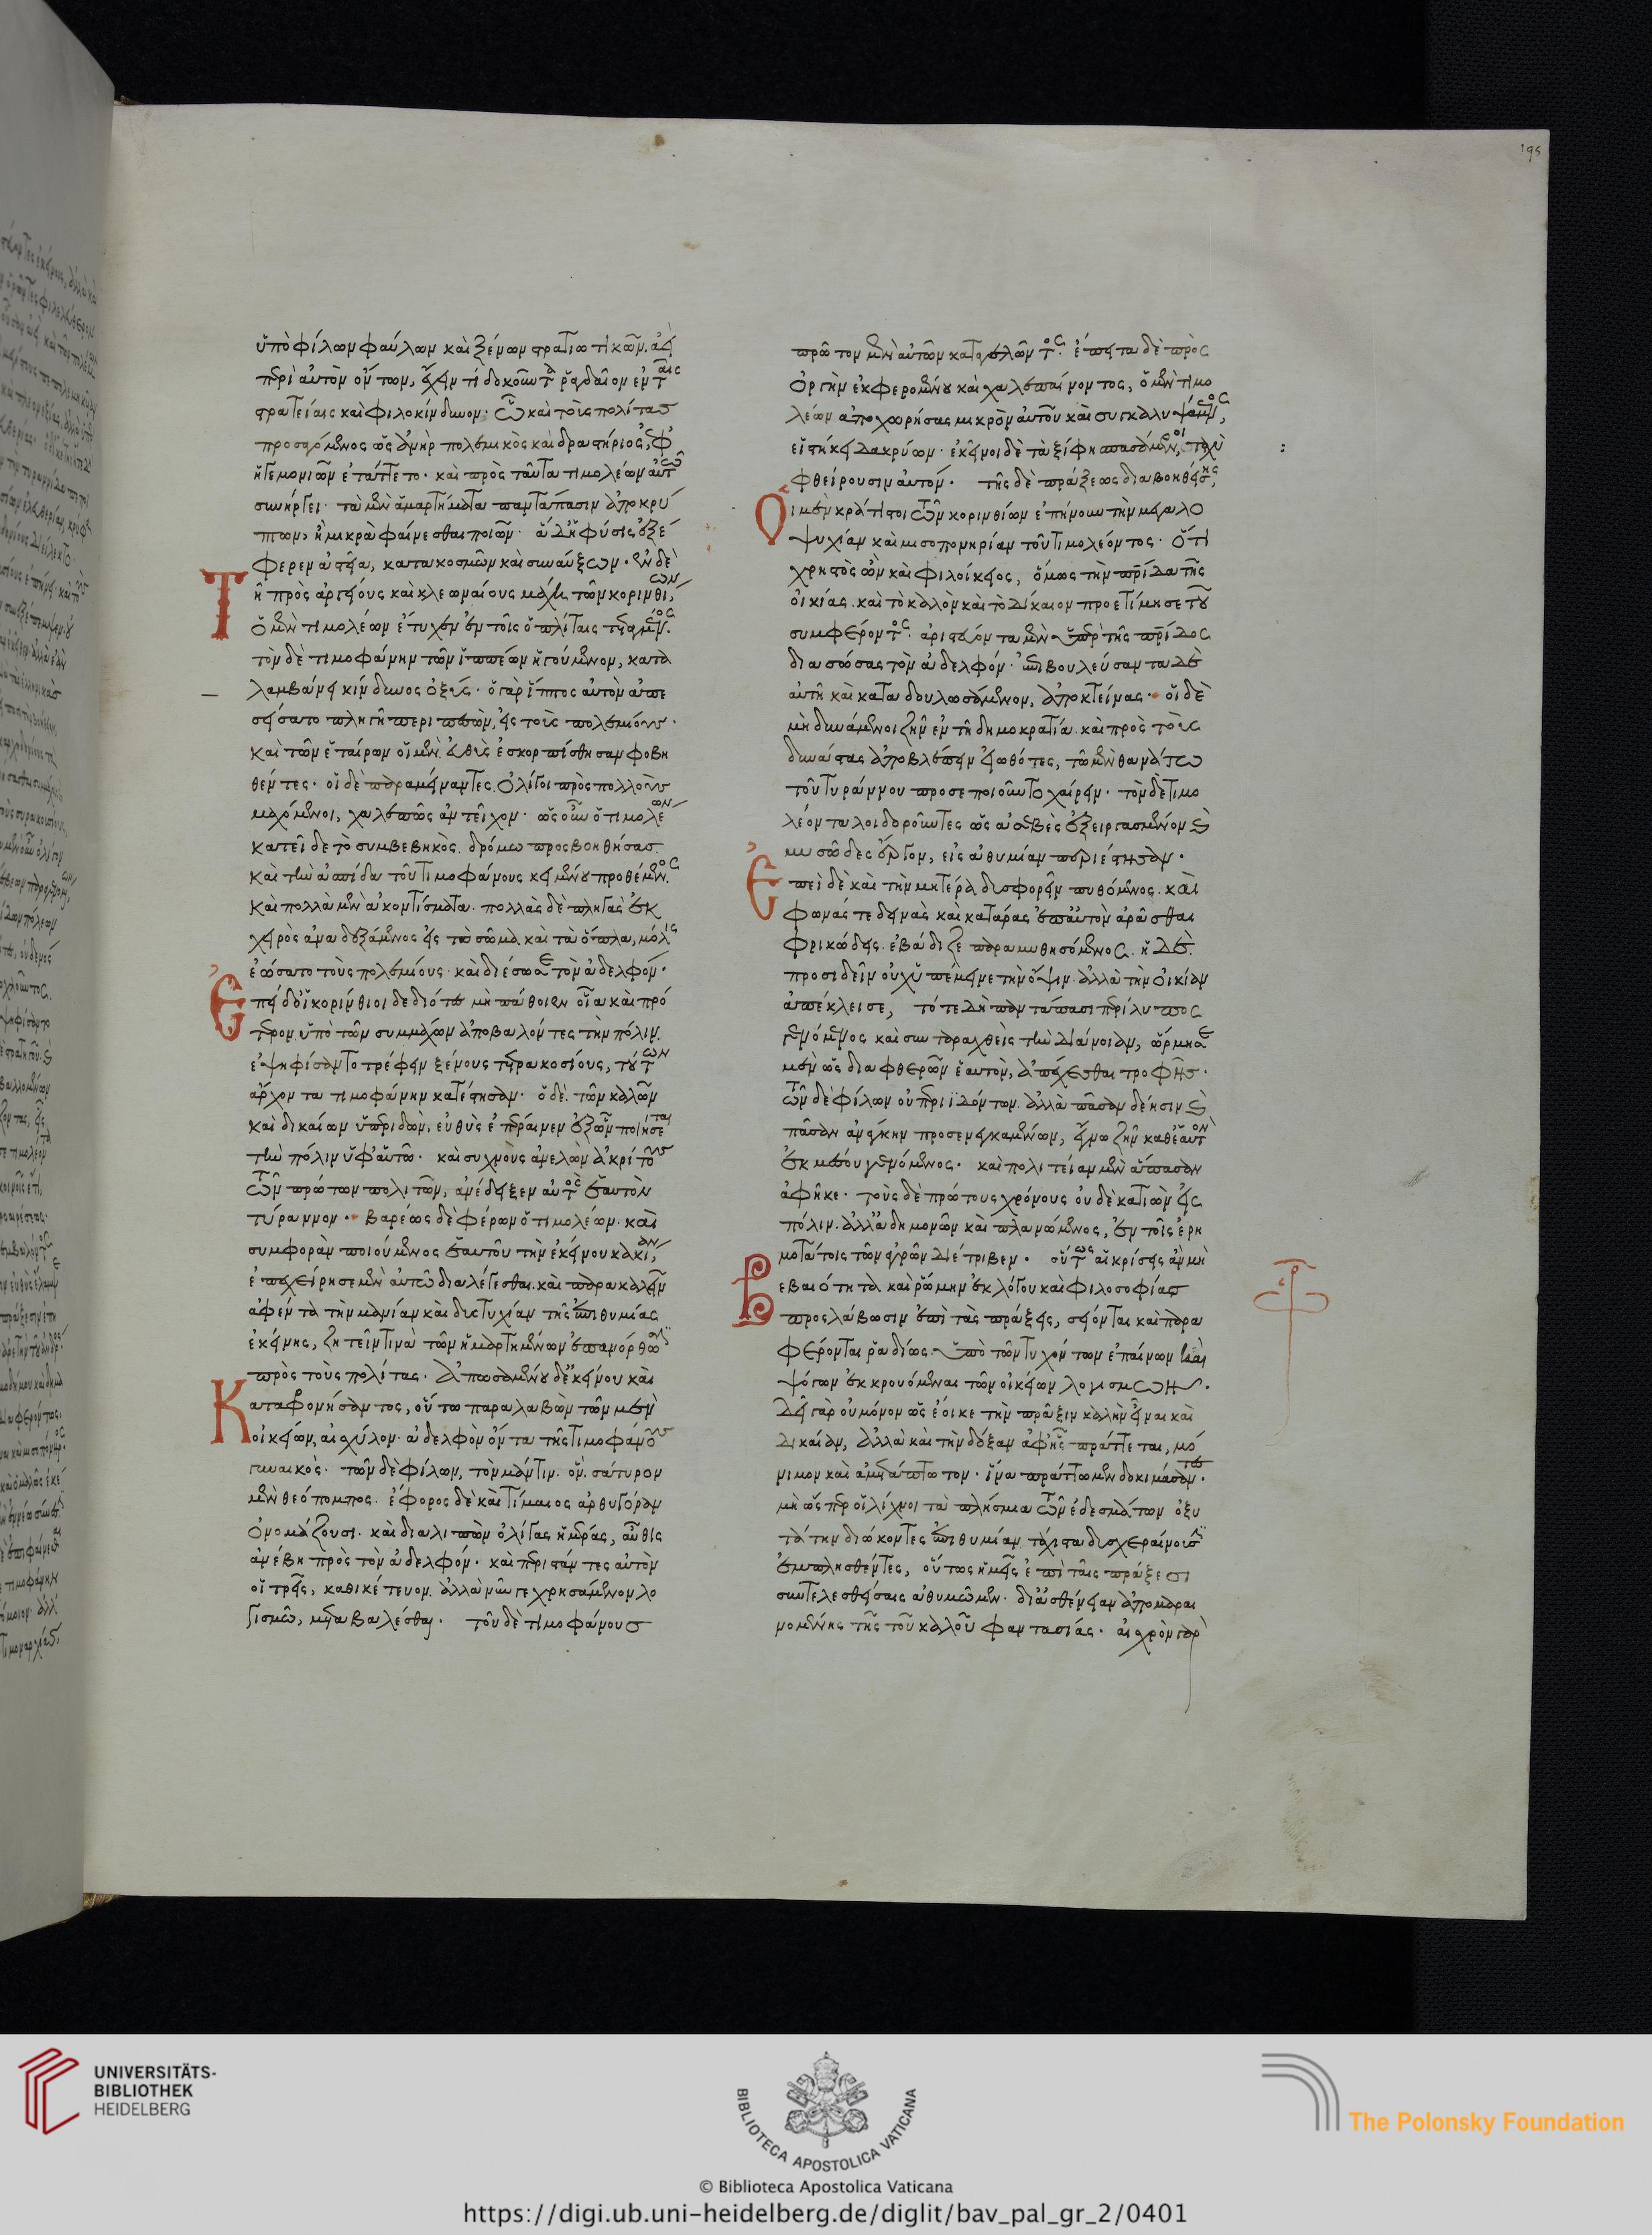 195
ὑπὸ φίλων φαύλων καὶ ξένων στρατιωτικῶν. ἀεὶ
περὶ αὐτὸν ὄντων, ἔχειν τι δοκοῦντα ῥαγδαῖον ἐν ταῖς
στρατείαις καὶ φιλοκίνδυνον· ᾧ καὶ τοὺς πολίτας
προσαγόμενος ὡς ἀνὴρ πολεμικὸς καὶ δραστήριος, ἐφ'
ἡγεμονιῶν ἐτάττετο· καὶ πρὸς ταῦτα τιμολέων αὐτῷ
συνήργει· τὰ μὲν ἁμαρτήματα παντάπασιν ἀποκρύ
πτων, ἢ μικρὰ φαίνεσθαι ποιῶν· ἃ δ' ἡ φύσις ἐξέ
φερεν ἀστεῖα, κατακοσμῶν καὶ συναύξων· ἐν δὲ
τῇ πρὸς ἀργείους καὶ κλεωναίους μάχῃ τῶν κορινθίων,
ὁ μὲν τιμολέων ἔτυχεν ἐν τοῖς ὁπλίταις τεταγμένος.
τὸν δὲ τιμοφάνην τῶν ἱππέων ἡγούμενον, κατα
λαμβάνει κίνδυνος ὀξύς· ὁ γὰρ ἵππος αὐτὸν ἀπε
σείσατο πληγῇ περιπεσὼν, εἰς τοὺς πολεμίους·
καὶ τῶν ἑταίρων οἱ μὲν εὐθὺς ἐσκορπίσθησαν φοβη
θέντες· οἱ δὲ παραμείναντες ὀλίγοι πρὸς πολλοὺς
μαχόμενοι, χαλεπῶς ἀντεῖχον· ὡς οὖν ὁ τιμολέων
κατεῖδε τὸ συμβεβηκός. δρόμω προσβοηθήσας
καὶ τὴν ἀσπίδα τοῦ τιμοφάνους κειμένου προθέμενος.
καὶ πολλὰ μὲν ἀκοντίσματα. πολλὰς δὲ πληγὰς ἐκ
χειρὸς ἀναδεξάμενος εἰς τὸ σῶμα καὶ τὰ ὅπλα, μόλις
ἐώσατο τοὺς πολεμίους. καὶ διέσωσε τὸν ἀδελφόν·
ἐπεὶ δ' οἱ κορίνθιοι δεδιότες μὴ πάθοιεν οἷα καὶ πρό
τερον ὑπὸ τῶν συμμάχων ἀποβαλόντες τὴν πόλιν.
ἐψηφίσαντο τρέφειν ξένους τετρακοσίους, τούτων
ἄρχοντα τιμοφάνην κατέστησαν· ὁ δὲ. τῶν καλῶν
καὶ δικαίων ὑπεριδὼν, εὐθὺς ἐπέραινεν ἐξ ὧν ποιήσεται
τὴν πόλιν ὑφ' αὑτῶ· καὶ συχνοὺς ἀνελὼν ἀκρίτους
τῶν πρώτων πολιτῶν, ἀνέδειξεν αὐτὸς ἑαυτὸν
τύραννον· βαρέως δὲ φέρων ὁ τιμολέων. καὶ
συμφορὰν ποιούμενος ἑαυτοῦ τὴν ἐκείνου κακίαν,
ἐπεχείρησε μὲν αὐτῶ διαλέγεσθαι. καὶ παρακαλεῖν
ἀφέντα τὴν μανίαν καὶ δυστυχίαν τῆς ἐπιθυμίας
ἐκείνης, ζητεῖν τινὰ τῶν ἡμαρτημένων ἐπανόρθωσιν
πρὸς τοὺς πολίτας· ἀπωσαμένου δ' ἐκείνου καὶ
καταφρονήσαντος, οὕτω παραλαβὼν τῶν μὲν
οἰκείων, αἰσχύλον. ἀδελφὸν ὄντα τῆς τιμοφάνους
γυναικός· τῶν δὲ φίλων, τὸν μάντιν. ὃν. σάτυρον
μὲν θεόπομπος. ἔφορος δὲ καὶ τίμαιος ὀρθαγόραν
ὀνομάζουσι. καὶ διαλιπὼν ὀλίγας ἡμέρας, αὖθις
ἀνέβη πρὸς τὸν ἀδελφόν· καὶ περιστάντες αὐτὸν
οἱ τρεῖς, καθικέτευον. ἀλλὰ νῦν γε χρησάμενον λο
γισμῶ, μεταβαλέσθαι· τοῦ δὲ τιμοφάνους
πρῶτον μὲν αὐτῶν καταγελῶντος. ἔπειτα δὲ πρὸς
ὀργὴν ἐκφερομένου καὶ χαλεπαίνοντος, ὁ μὲν τιμο
λέων ἀποχωρήσας μικρὸν αὐτοῦ καὶ συγκαλυψάμενος,
εἱστήκει δακρύων· ἐκεῖνοι δὲ τὰ ξίφη σπασάμενοι, ταχὺ
φθείρουσιν αὐτόν· τῆς δὲ πράξεως διαβοηθείσης,
οἱ μὲν κράτιστοι τῶν κορινθίων ἐπήνουν τὴν μεγαλο
ψυχίαν καὶ μισοπονηρίαν τοῦ τιμολέοντος· ὅτι
χρηστὸς ὢν καὶ φιλοίκειος, ὅμως τὴν πατρίδα τῆς
οἰκίας. καὶ τὸ καλὸν καὶ τὸ δίκαιον προετίμησε τοῦ
συμφέροντος· ἀριστεύοντα μὲν ὑπὲρ τῆς πατρίδος
διασώσας τὸν ἀδελφόν· ἐπιβουλεύσαντα δὲ
αὐτῇ καὶ καταδουλωσάμενον, ἀποκτείνας· οἱ δὲ
μὴ δυνάμενοι ζῆν ἐν τῇ δημοκρατία. καὶ πρὸς τοὺς
δυνάστας ἀποβλέπειν εἰωθότες, τῶ μὲν θανάτω
τοῦ τυράννου προσεποιοῦντο χαίρειν· τὸν δὲ τιμο
λέοντα λοιδοροῦντες ὡς ἀσεβὲς ἐξειργασμένον καὶ
μυσῶδες ἔργον, εἰς ἀθυμίαν περιέστησαν·
ἐπεὶ δὲ καὶ τὴν μητέρα δυσφορεῖν πυθόμενος. καὶ
φωνάς τε δεινὰς καὶ κατάρας ἐπ' αὐτὸν ἀρᾶσθαι
φρικώδεις. ἐβάδιζε παραμυθησόμενος. ἡ δὲ
προσιδεῖν οὐχ ὑπέμεινε τὴν ὄψιν. ἀλλὰ τὴν οἰκίαν
ἀπέκλεισε, τότε δὴ παντάπασι περίλυπος
γενόμενος καὶ συνταραχθεὶς τὴν διάνοιαν, ὥρμησε
μὲν ὡς διαφθερῶν ἑαυτὸν, ἀπέχεσθαι τροφῆς·
τῶν δὲ φίλων οὐ περιϊδόντων. ἀλλὰ πᾶσαν δέησιν καὶ
πᾶσαν ἀνάγκην προσενεγκαμένων, ἔγνω ζῆν καθ' ἑαυτὸν
ἐκ μέσου γενόμενος· καὶ πολιτείαν μὲν ἅπασαν
ἀφῆκε· τοὺς δὲ πρώτους χρόνους οὐδὲ κατιὼν εἰς
πόλιν. ἀλλ' ἀδημονῶν καὶ πλανώμενος, ἐν τοῖς ἐρη
μοτάτοις τῶν ἀγρῶν διέτριβεν· οὕτως αἱ κρίσεις ἂν μὴ
βεβαιότητα καὶ ῥώμην ἐκ λόγου καὶ φιλοσοφίας
προσλάβωσιν ἐπὶ τὰς πράξεις, σείονται καὶ παρα
φέρονται ῥαδίως. ὑπὸ τῶν τυχόντων ἐπαίνων καὶ
ψόγων ἐκκρουόμεναι τῶν οἰκείων λογισμῶν·
δεῖ γὰρ οὐ μόνον ὡς ἔοικε τὴν πρᾶξιν καλὴν εἶναι καὶ
δικαίαν, ἀλλὰ καὶ τὴν δόξαν ἀφ' ἧς πράττεται, μό
νιμον καὶ ἀμετάπτωτον· ἵνα πράττωμεν δοκιμάσαντες·
μὴ ὥσπερ οἱ λίχνοι τὰ πλήσμια τῶν ἐδεσμάτων ὀξυ
τάτην διώκοντες ἐπιθυμίαν τάχιστα δυσχεραίνουσιν
ἐμπλησθέντες, οὕτως ἡμεῖς ἐπὶ ταῖς πράξεσι
συντελεσθείσαις ἀθυμῶμεν· δι' ἀσθένειαν ἀπομαραι
νομένης τῆς τοῦ καλοῦ φαντασίας· αἰσχρὸν γὰρ
UNIVERSITÄTS-
BIBLIOTHEK
HEIDELBERG
BIBLIOTECA APOSTOLICA VATICANA
The Polonsky Foundation
© Biblioteca Apostolica Vaticana
https://digi.ub.uni-heidelberg.de/diglit/bav_pal_gr_2/0401